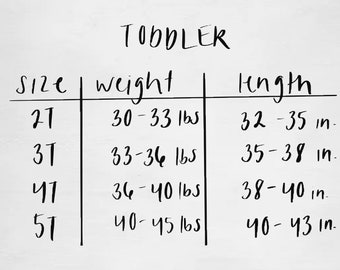 TODDLER
size weight length
2T 30-33 lbs 32-35 in.
3T 33-36 lbs 35-38 in.
4T 36-40 lbs 38-40 in.
5T 40-45 lbs 40-43 in.